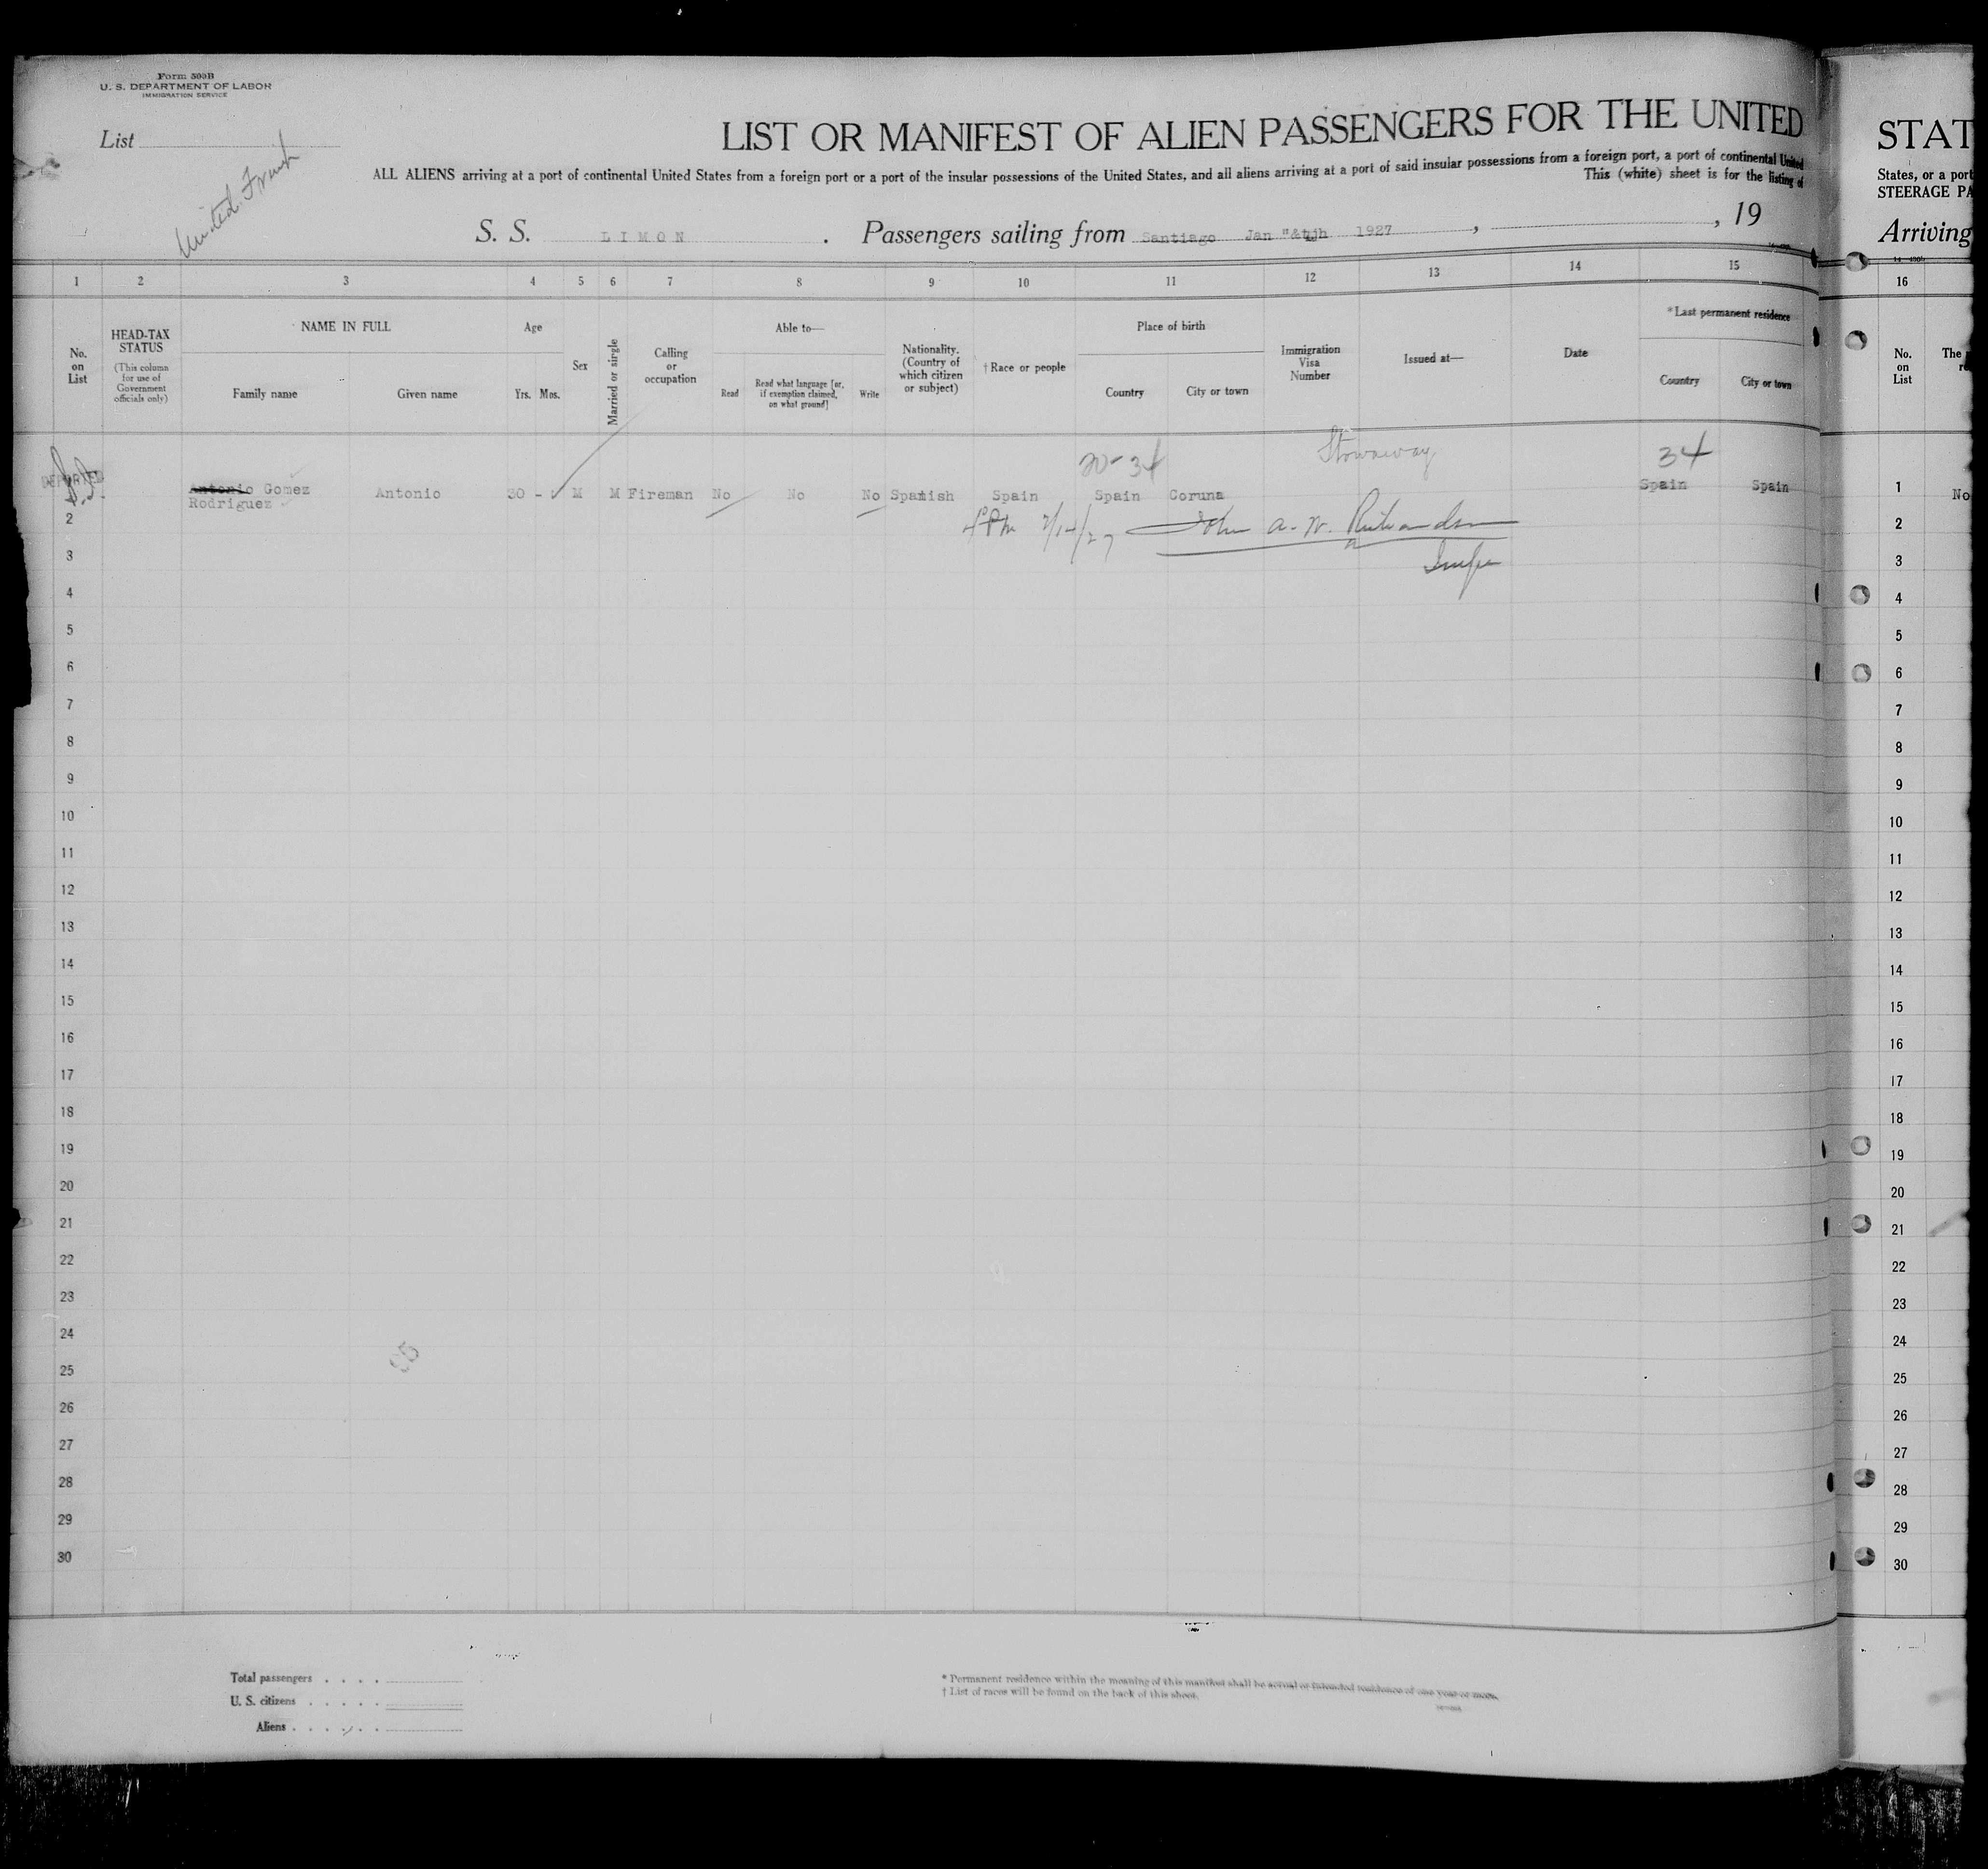 Form 500B
U. S. DEPARTMENT OF LABOR
IMMIGRATION SERVICE
List
United Fruit
LIST OR MANIFEST OF ALIEN PASSENGERS FOR THE UNITED
STAT
ALL ALIENS arriving at a port of continental United States from a foreign port or a port of the insular possessions of the United States, and all aliens arriving at a port of said insular possessions from a foreign port, a port of continental United
States, or a port
This (white) sheet is for the listing of
STEERAGE PA
S. S. LIMON . Passengers sailing from Santiago Jan 1927 , , 19
Arriving
1 2 3 4 5 6 7 8 9 10 11 12 13 14 15 16
No. on List
HEAD-TAX STATUS
(This column for use of Government officials only)
NAME IN FULL
Family name
Given name
Age
Yrs. Mos.
Sex
Married or single
Calling or occupation
Able to—
Read
Read what language [or, if exemption claimed, on what ground]
Write
Nationality. (Country of which citizen or subject)
† Race or people
Place of birth
Country
City or town
Immigration Visa Number
Issued at—
Date
* Last permanent residence
Country
City or town
No. on List
The
Stowaway
20-34
34
DEPORTED
1 Antonio Gomez Rodriguez Antonio 30 - M M Fireman No No No Spanish Spain Spain Coruna Spain Spain 1 No
John A. W. Richardson
2 2
3 3
4 4
5 5
6 6
7 7
8 8
9 9
10 10
11 11
12 12
13 13
14 14
15 15
16 16
17 17
18 18
19 19
20 20
21 21
22 22
23 23
24 24
25 25
26 26
27 27
28 28
29 29
30 30
Total passengers . . . .
U. S. citizens . . . . .
Aliens . . . . . .
* Permanent residence within the meaning of this manifest shall be actual or intended residence of one year or more.
† List of races will be found on the back of this sheet.